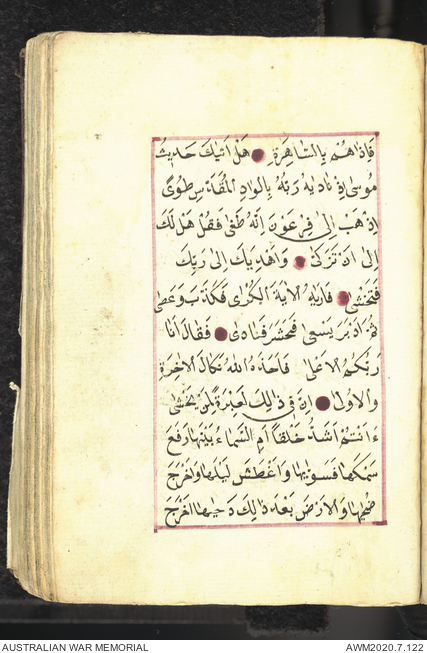 فَاِذَا هُمْ بِالسَّاهِرَةِ هَلْ اَتٰيكَ حَدٖيثُ
مُوسٰى اِذْ نَادٰيهُ رَبُّهُ بِالْوَادِ الْمُقَدَّسِ طُوًى
اِذْهَبْ اِلٰى فِرْعَوْنَ اِنَّهُ طَغٰى فَقُلْ هَلْ لَكَ
اِلٰى اَنْ تَزَكّٰى وَاَهْدِيَكَ اِلٰى رَبِّكَ
فَتَخْشٰى فَاَرٰيهُ الْاٰيَةَ الْكُبْرٰى فَكَذَّبَ وَعَصٰى
ثُمَّ اَدْبَرَ يَسْعٰى فَحَشَرَ فَنَادٰى فَقَالَ اَنَا
رَبُّكُمُ الْاَعْلٰى فَاَخَذَهُ اللّٰهُ نَكَالَ الْاٰخِرَةِ
وَالْاُولٰى اِنَّ فٖى ذٰلِكَ لَعِبْرَةً لِمَنْ يَخْشٰى
ءَاَنْتُمْ اَشَدُّ خَلْقًا اَمِ السَّمَاءُ بَنٰيهَا رَفَعَ
سَمْكَهَا فَسَوّٰيهَا وَاَغْطَشَ لَيْلَهَا وَاَخْرَجَ
ضُحٰيهَا وَالْاَرْضَ بَعْدَ ذٰلِكَ دَحٰيهَا اَخْرَجَ
AUSTRALIAN WAR MEMORIAL
AWM2020.7.122